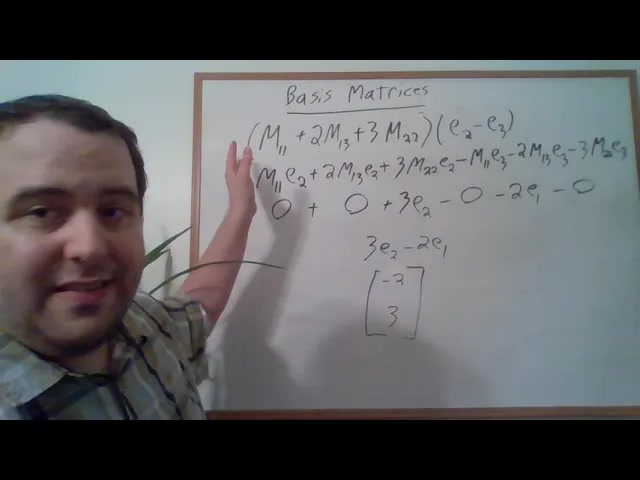 Basis Matrices
(M₁₁ + 2M₁₃ + 3M₂₂)(e₂ - e₃)
M₁₁e₂ + 2M₁₃e₂ + 3M₂₂e₂ - M₁₁e₃ - 2M₁₃e₃ - 3M₂₂e₃
0 + 0 + 3e₂ - 0 - 2e₁ - 0
3e₂ - 2e₁
[-2
3]